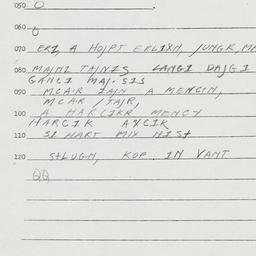 050 O
060 O
070 ERZ A HOJPT ERLIXH, JUNGR, MA
080 MAINI THINIS LANGI DAJGI
GANCI MAJ. SIS
090 M.C.A.R ZAIN A MENCIN,
MCAR / TAJR,
100 A HARCIKR MENCY
HARCIK AXCIK
110 SI HART MIX NIST
120 StLUGH, KOP IN VANT
QQ